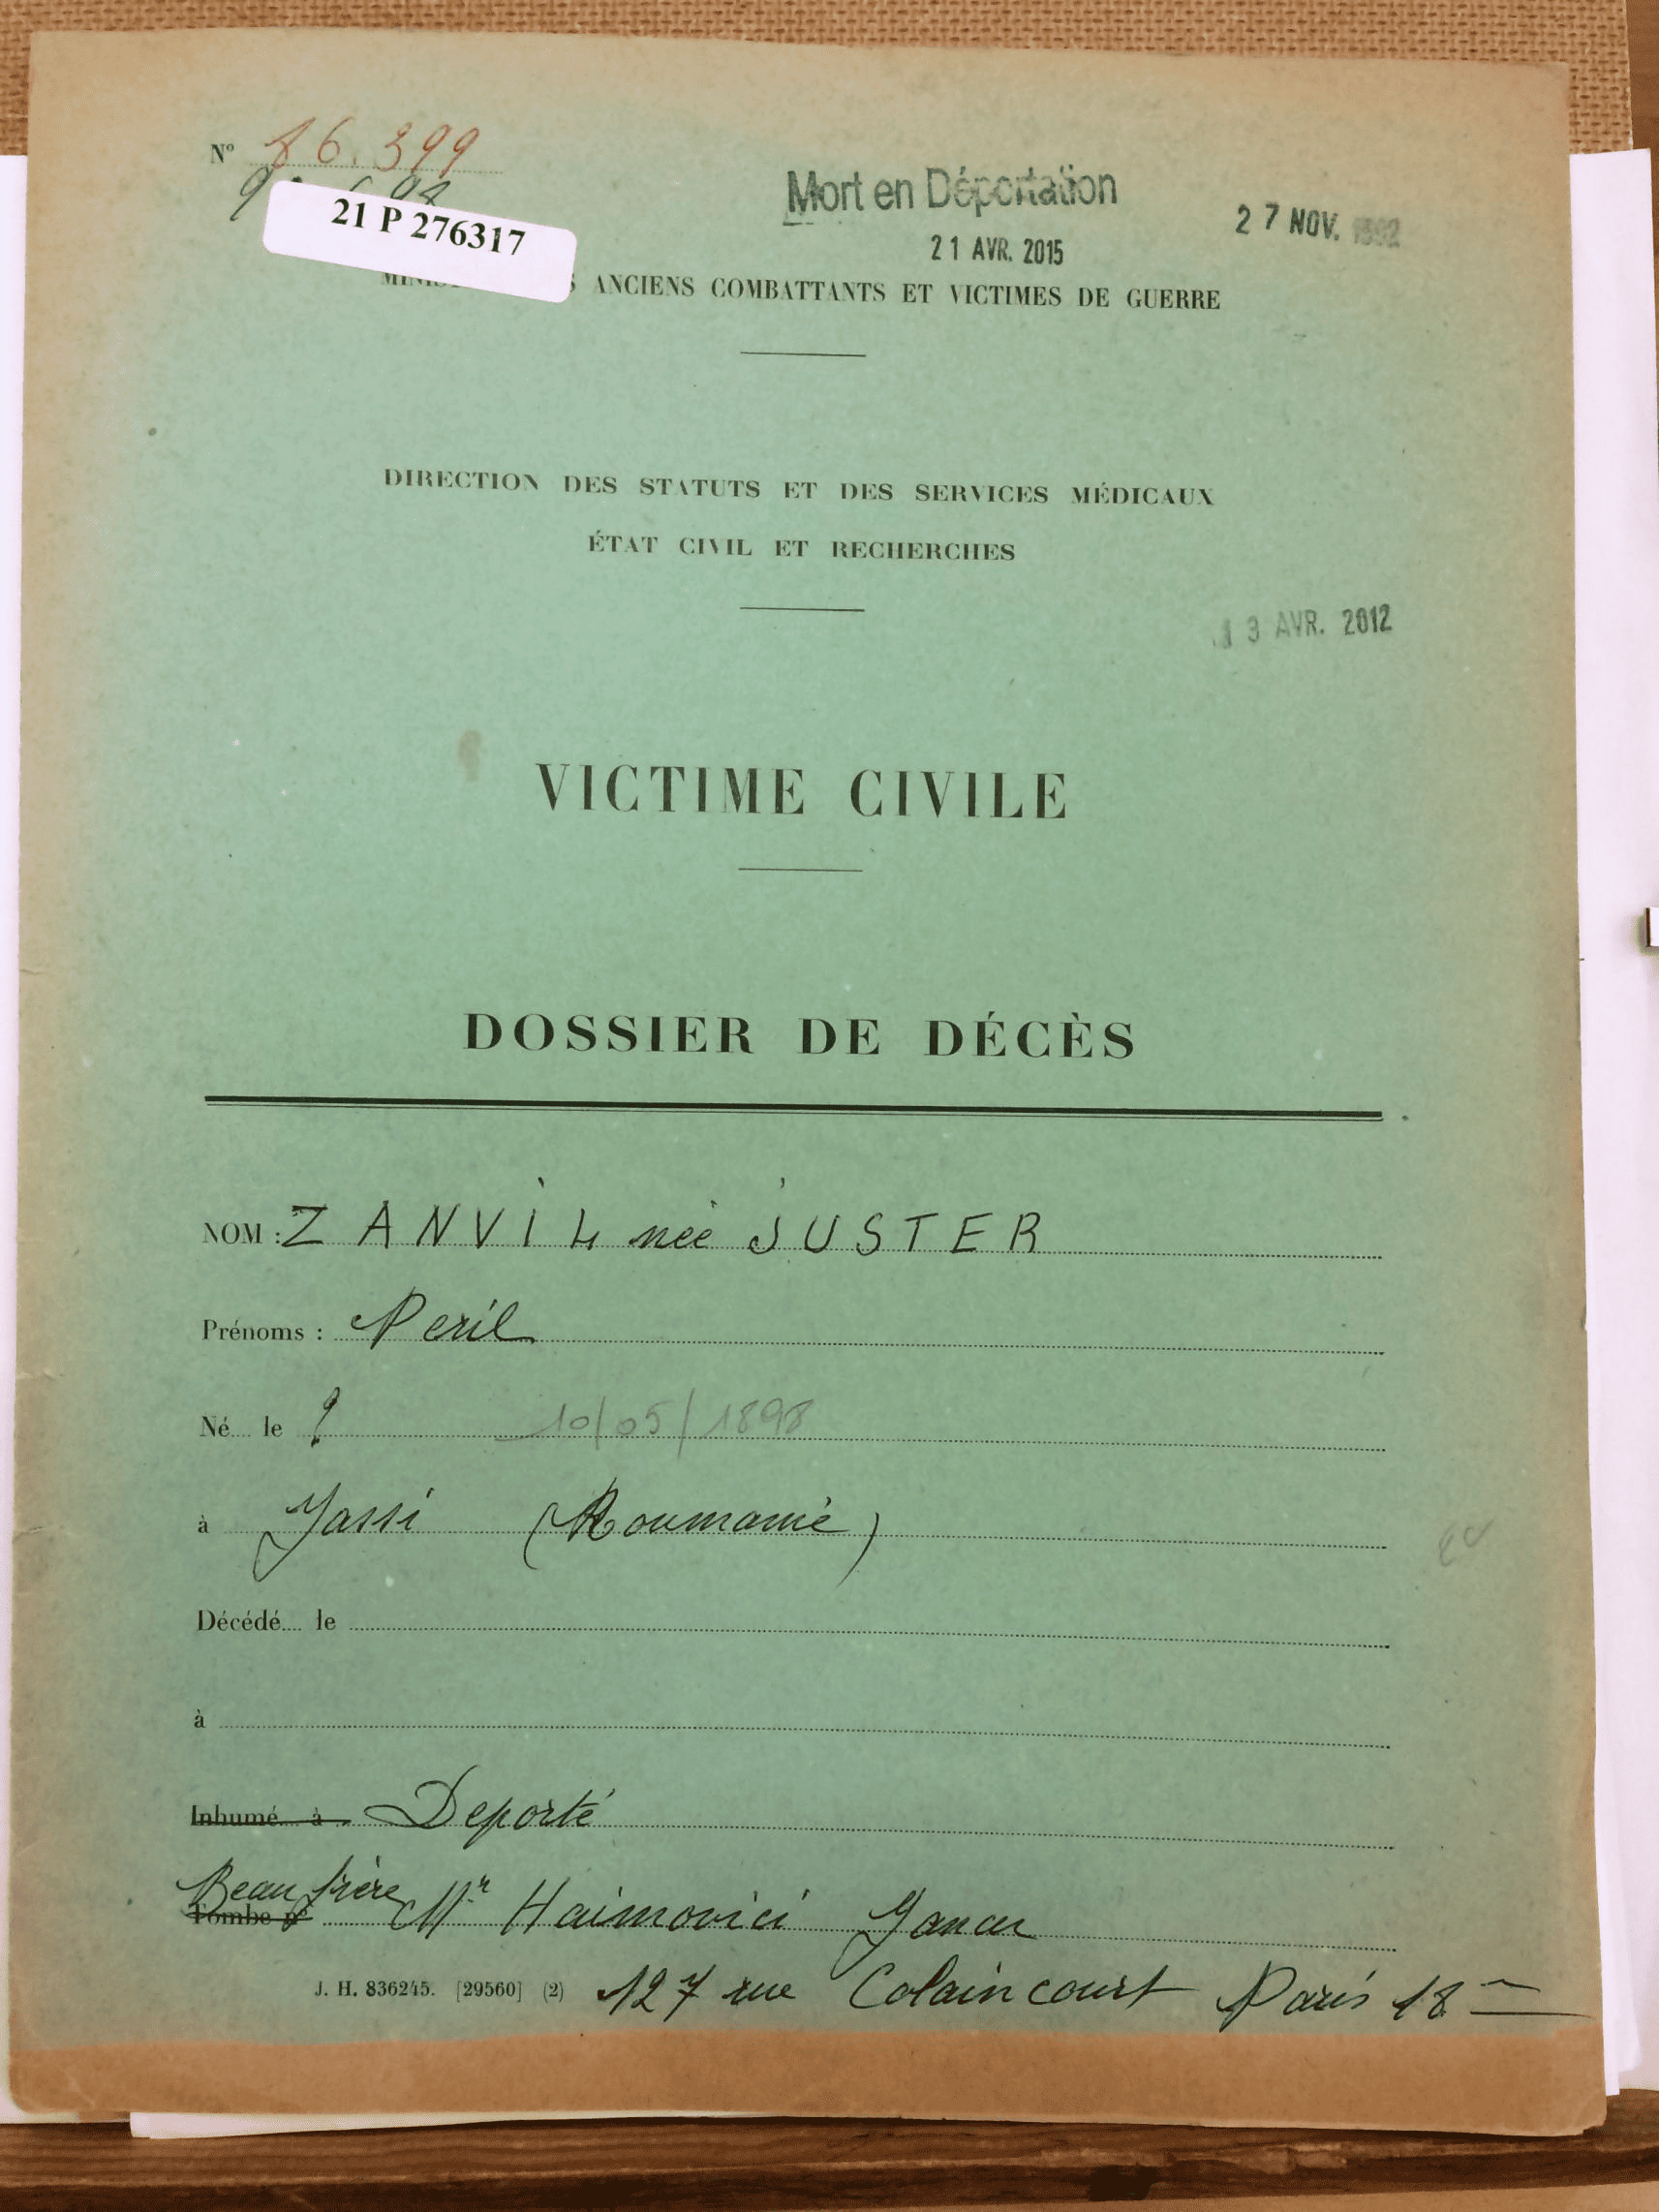 N° 16.399
21 P 276317
Mort en Déportation
27 NOV.
21 AVR. 2015
ANCIENS COMBATTANTS ET VICTIMES DE GUERRE
DIRECTION DES STATUTS ET DES SERVICES MÉDICAUX
ÉTAT CIVIL ET RECHERCHES
13 AVR. 2012
VICTIME CIVILE
DOSSIER DE DÉCÈS
NOM : ZANVIL née JUSTER
Prénoms : Peril
Né le ? 10/05/1898
à Jassi (Roumanie)
Décédé le
à
Inhumé à Deporté
Beau frère
Tombe n° Mr Haimovici
J. H. 836245. [29560] (2) 127 rue Colaincourt Paris 18